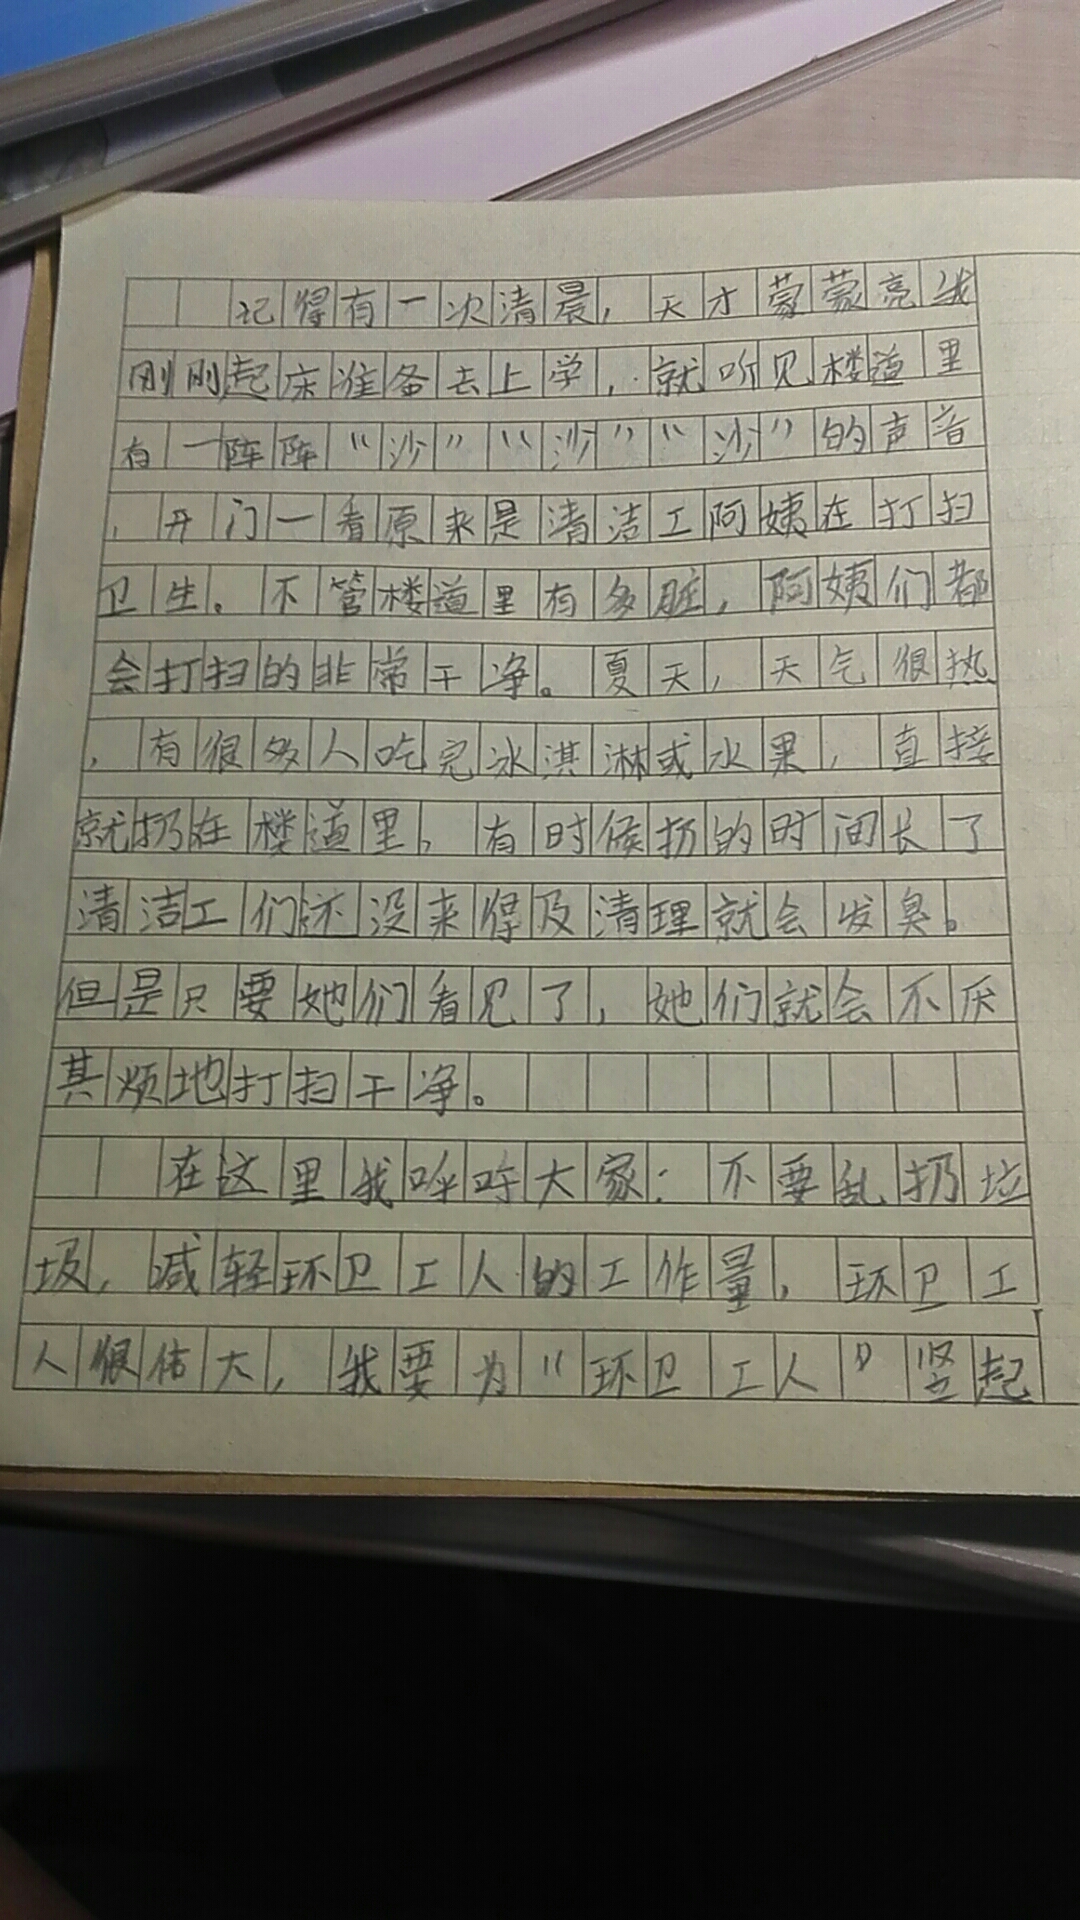 记得有一次清晨，天才蒙蒙亮我
刚刚起床准备去上学，就听见楼道里
有一阵阵“沙”“沙”“沙”的声音
，开门一看原来是清洁工阿姨在打扫
卫生。不管楼道里有多脏，阿姨们都
会打扫的非常干净。夏天，天气很热
，有很多人吃完冰淇淋或水果，直接
就扔在楼道里，有时候扔的时间长了
清洁工们还没来得及清理就会发臭。
但是只要她们看见了，她们就会不厌
其烦地打扫干净。
在这里我呼吁大家：不要乱扔垃
圾，减轻环卫工人的工作量，环卫工
人很伟大，我要为“环卫工人”竖起